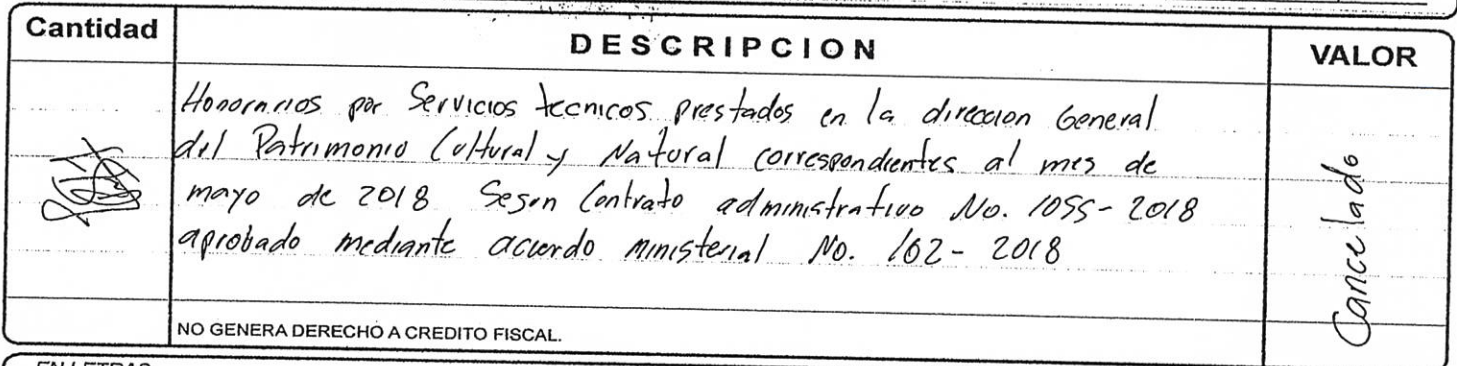 Cantidad
DESCRIPCION
VALOR
Honorarios por Servicios tecnicos prestados en la direccion General
del Patrimonio Cultural y Natural correspondientes al mes de
mayo de 2018 Segun Contrato administrativo No. 1055-2018
aprobado mediante acuerdo ministerial No. 162-2018
Cancelado
NO GENERA DERECHO A CREDITO FISCAL.
EN LETRAS